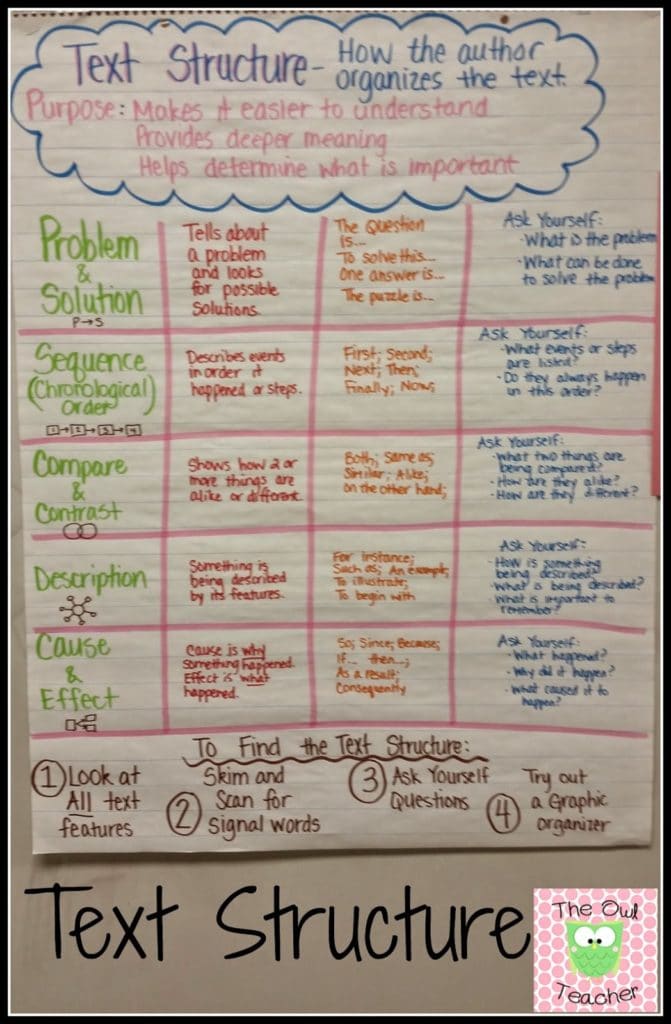 Text Structure - How the author
organizes the text.
Purpose: Makes it easier to understand
Provides deeper meaning
Helps determine what is important
Problem
&
Solution
P→S
Tells about
a problem
and looks
for possible
Solutions.
The Question
is...
To solve this...
One answer is...
The puzzle is...
Ask Yourself:
· What is the problem
· What can be done
to solve the problem
Sequence
(Chronological)
Order
1→2→3→4
Describes events
in order it
happened or steps.
First; Second;
Next; Then;
Finally; Now;
Ask Yourself:
· What events or steps
are listed?
· Do they always happen
in this order?
Compare
&
Contrast
Shows how 2 or
more things are
alike or different.
Both; Same as;
Similar; Alike;
On the other hand;
Ask Yourself:
· What two things are
being compared?
· How are they alike?
· How are they different?
Description
Something is
being described
by its features.
For Instance;
Such as; An example;
To illustrate;
To begin with
Ask Yourself:
· How is something
being described?
· What is being described?
· What is important to
remember?
Cause
&
Effect
Cause is why
something happened.
Effect is what
happened.
So; Since; Because;
If... then...;
As a result;
Consequently
Ask Yourself:
· What happened?
· Why did it happen?
· What caused it to
happen?
To Find the Text Structure:
1 Look at
All text
features
2 Skim and
Scan for
Signal words
3 Ask Yourself
Questions
4 Try out
a Graphic
organizer
Text Structure
The Owl
Teacher